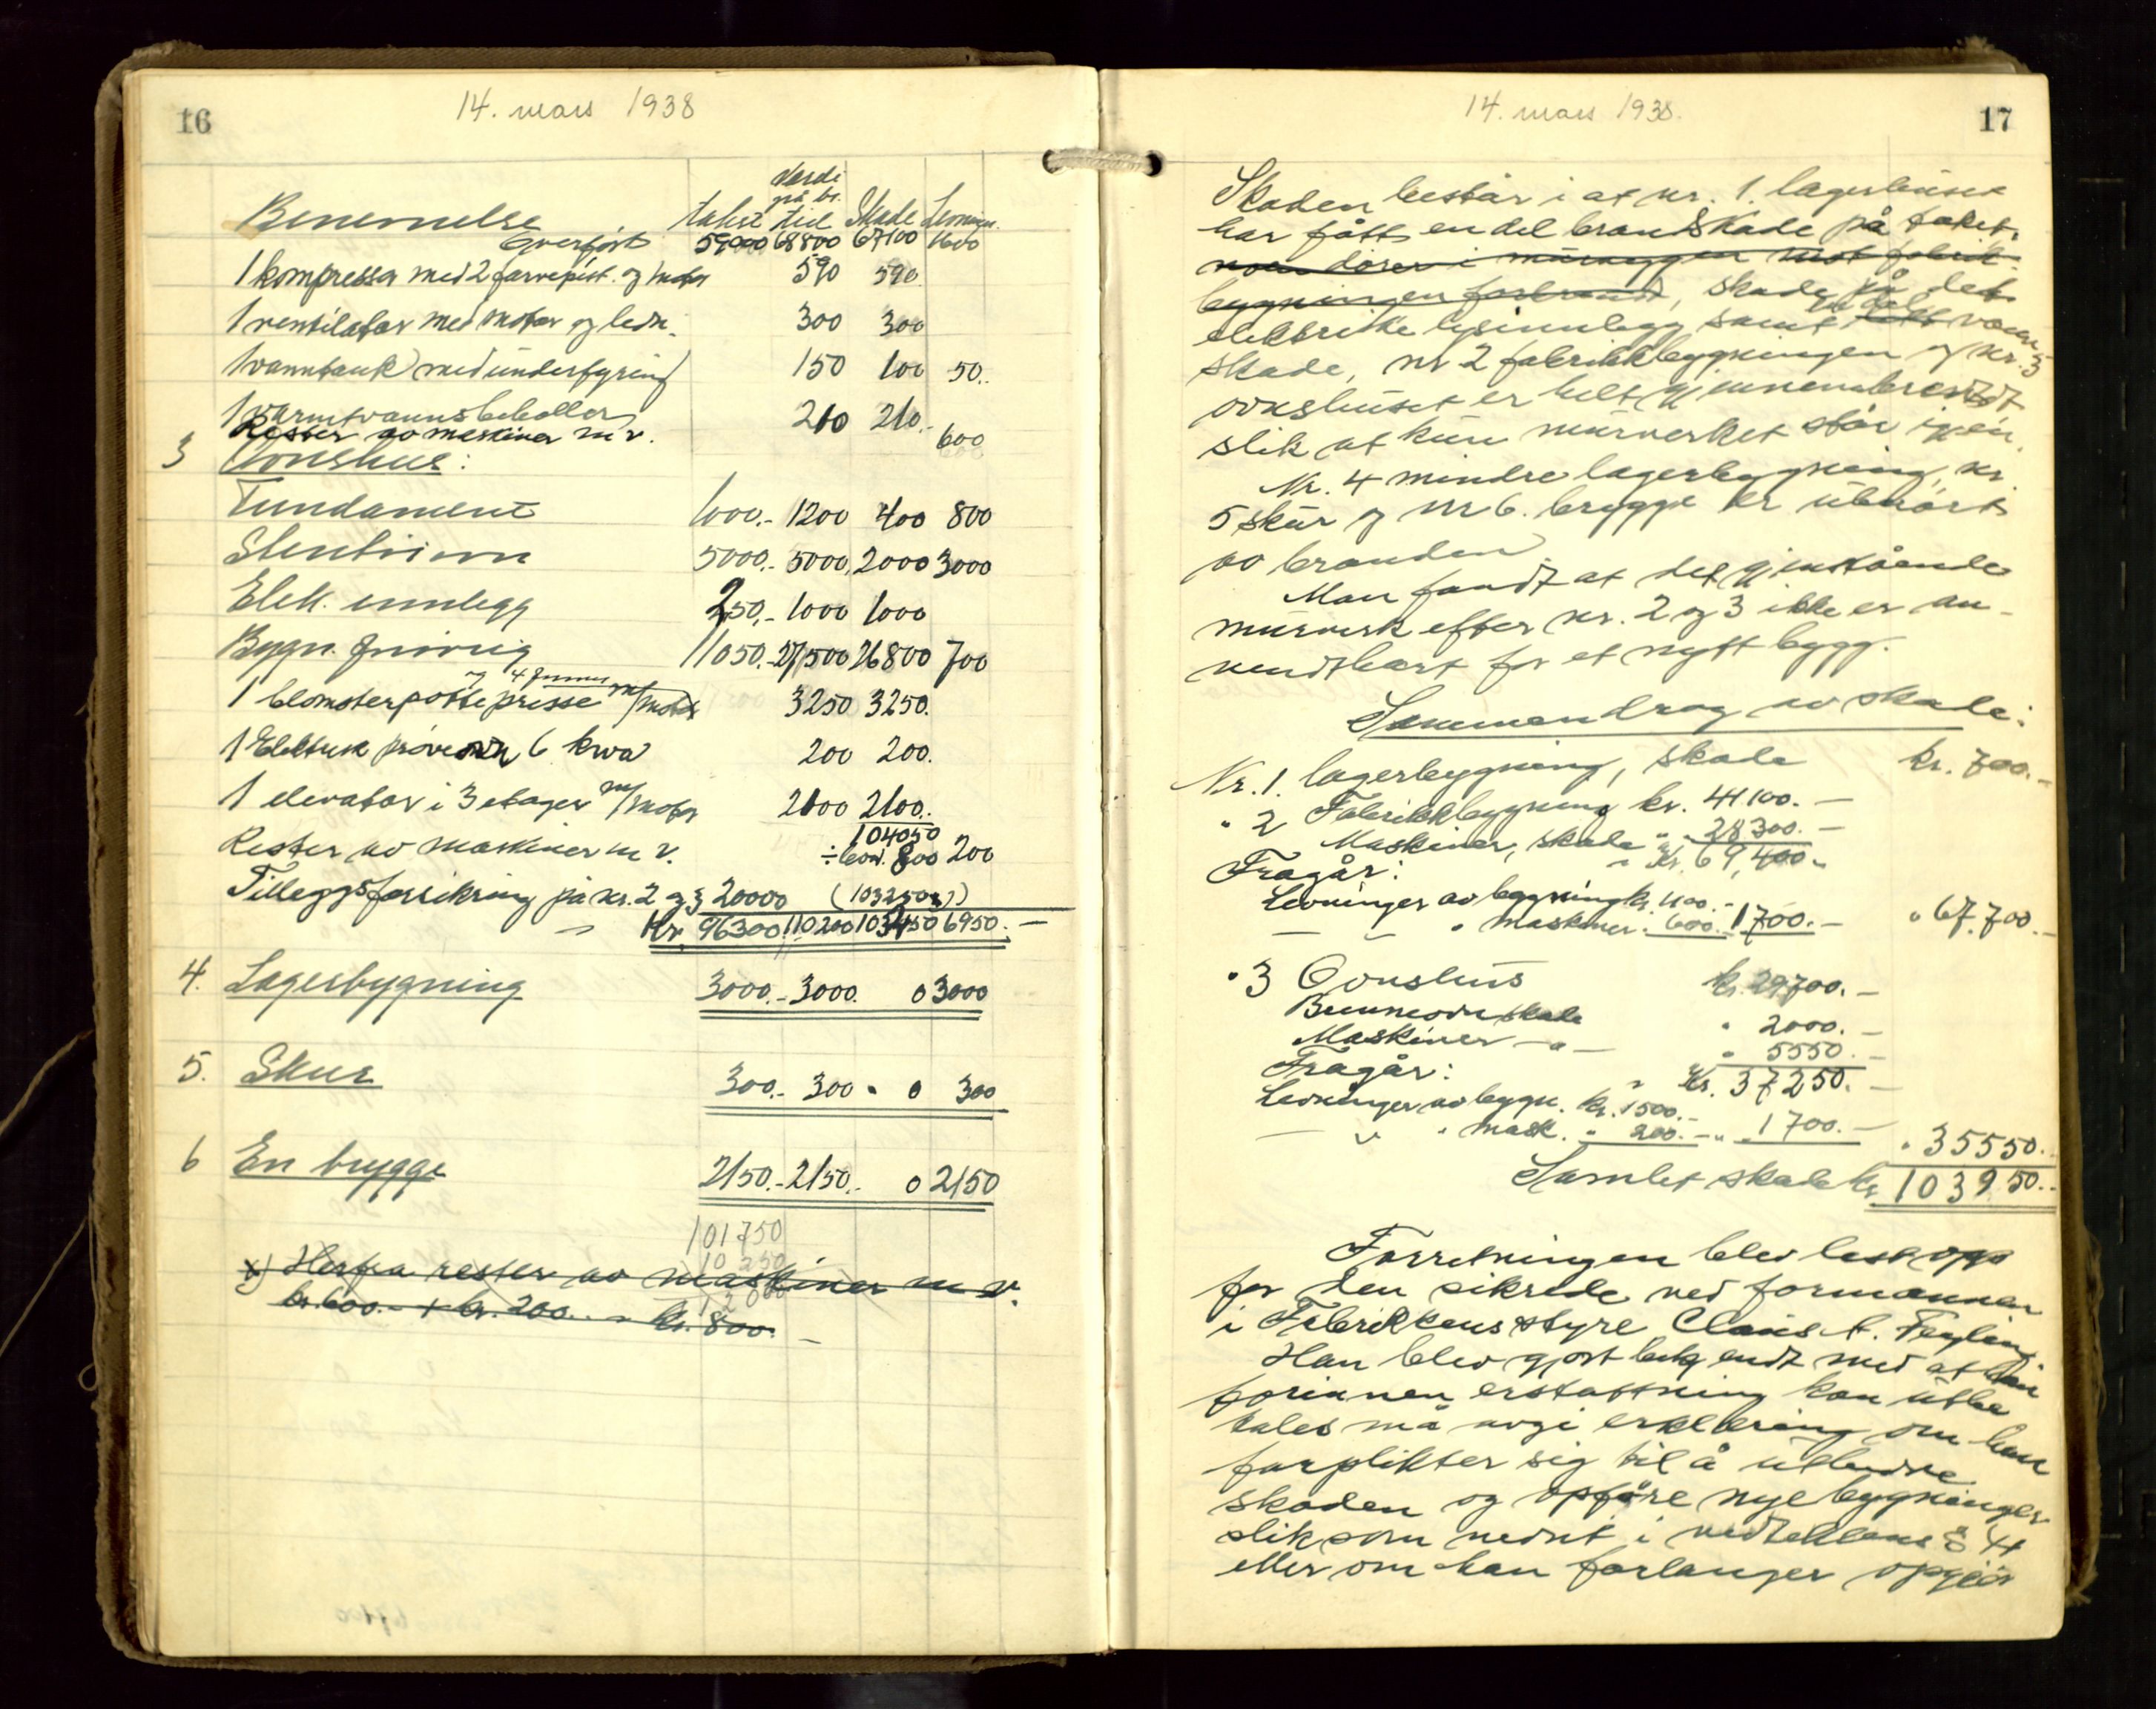 16
14. mars 1938
Verdi
på br.
Benevnelse takst tid Skade Levning.
Overført 59000 68800 67100 1600
1 kompressor med 2 farvepist. og motor 590 590.
1 ventilator med motor og ledn. 300 300
1 vanntank med underfyring 150 100 50..
1 varmtvannsbeholder 210 210.-
Rester av maskiner m v. 600
3 Ovnshus:
Fundament 1000.- 1200 400 800
5000.- 5000. 2000 3000
Elek. innlegg 250.- 1000 1000
Bygn. forøvrig 11050.- 27500 26800 700
og 4 former
1 blomsterpottepresse m/motor 3250 3250.
1 Elektrisk prøveovn 6 kwa 200 200.
1 elevator i 3 etager m/motor 2100 2100..
104050
Rester av maskiner m v. ÷ levn. 800 200
Tilleggsforsikring på nr. 2 og 3 20000 (103250 x))
Kr. 96300 110200 103450 6950.-
4. Lagerbygning 3000.- 3000. 0 3000
5. Skur 300.- 300 " 0 300
6 En brygge 2150.- 2150.- 0 2150
101750
10 250
x) Herfra rester av maskiner m v.
kr. 600.- + kr. 200.. = kr. 800.-
14. mars 1938.
17
Skaden består i at nr. 1. lagerhuset
har fått en del brandskade på taket,
noen dører i murveggen mot fabrik-
bygningen forbrandt, skade på det
elektriske lysinnlegg samt en del vann-
skade, nr 2 fabrikkbygningen og nr. 3
ovnshuset er helt gjennembrendt
slik at kun murverket står igjen.
Nr. 4 mindre lagerbygning, nr.
5 skur og nr 6. brygge er uberørt
av branden
Man fandt at det gjenstående
murverk efter nr. 2 og 3 ikke er an-
vendtbart for et nytt bygg.
Sammendrag av skade:
Nr. 1. lagerbygning, skade kr. 700.-
" 2 Fabrikkbygning kr. 41100.-
Maskiner, skade " 28300.-
Fragår: = kr. 69,400.-
Levninger av bygning kr. 1100.-
— " — " maskiner " 600.- 1700.- " 67.700.-
" 3 Ovnshus kr. 29700.-
Brennovn skade " 2000.-
Maskiner -"- " 5550.-
Fragår: = Kr. 37250.-
Levninger av bygn. kr. 1500.-
— " — " mask. " 200.- " 1700.- " 35550..
Samlet skade kr. 103950..
Forretningen blev lest opp
for den sikrede ved formannen
i Fabrikkens styre Claus
Han blev gjort bekjendt med at han
forinnen erstattning kan utbe
tales må avgi erklæring om han
forplikter sig til å utbedre
skaden og opføre nye bygninger
slik som nevnt i vedtektens § 44
eller om han forlanger opgjør